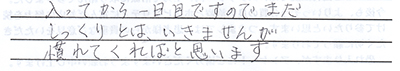 入ってから一日目ですのでまだ
しっくりとは、いきませんが
慣れてくればと思います